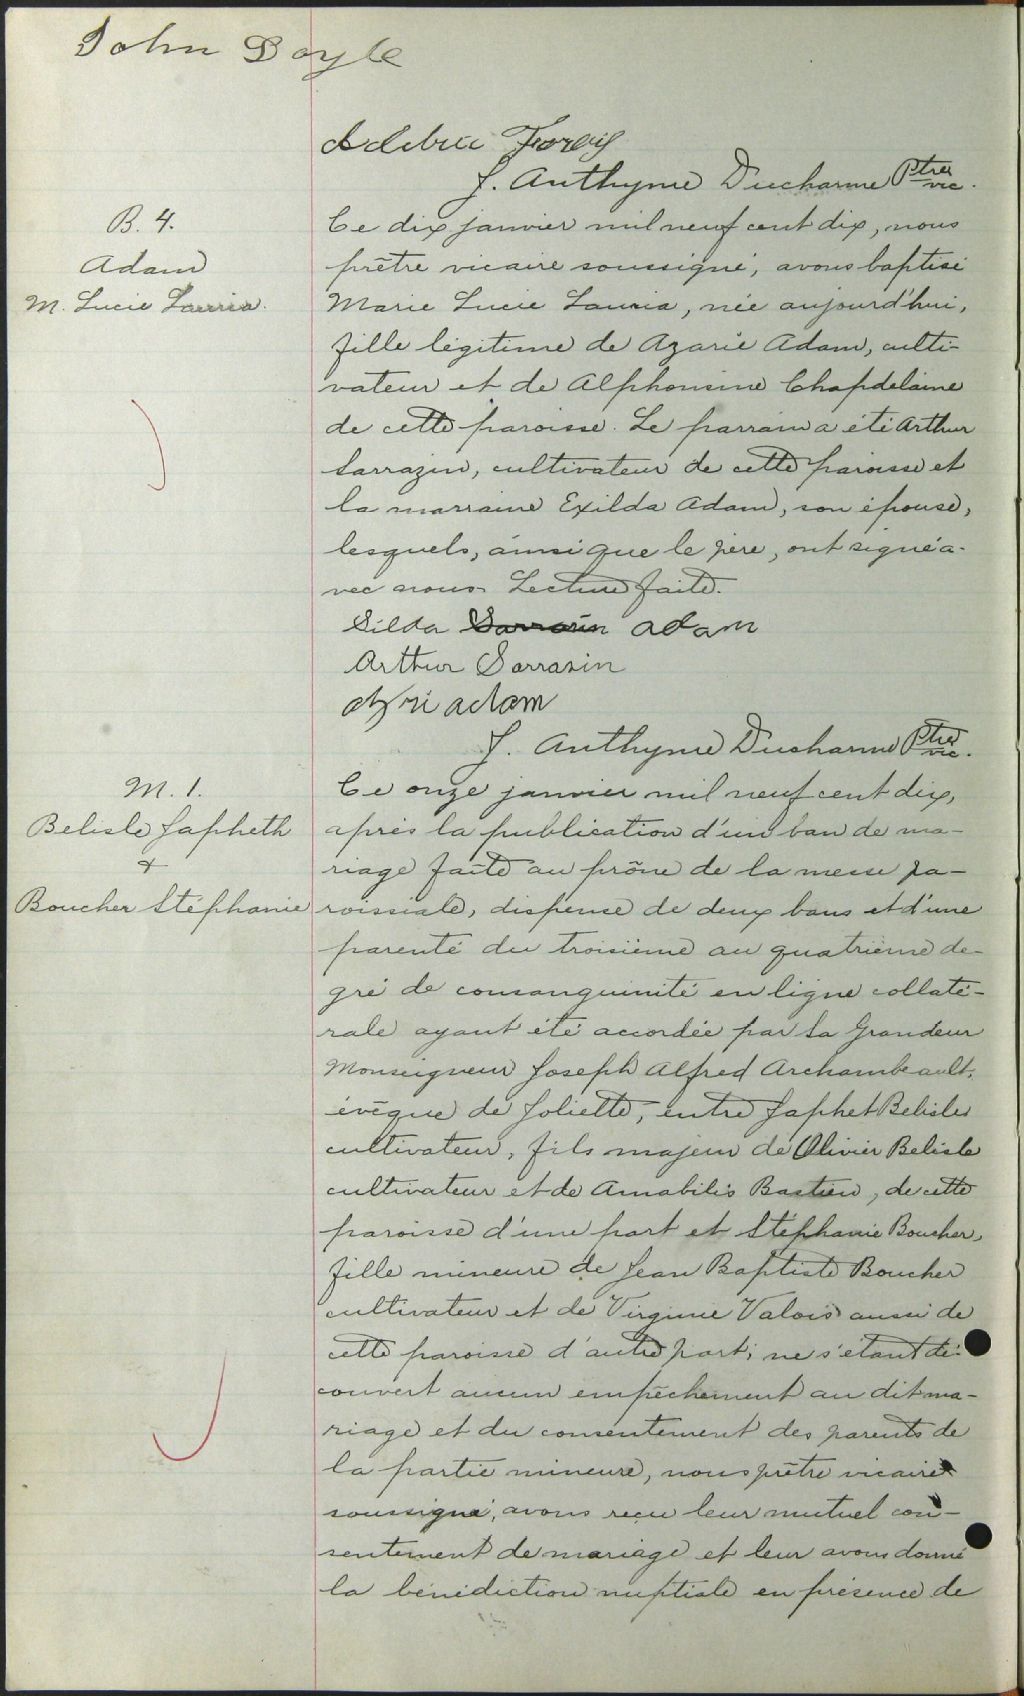 John Doyle
J. Anthyme Ducharme Ptre vic.
B. 4.
Adam
M. Lucie Lauria.
Ce dix janvier mil neuf cent dix, nous
prêtre vicaire soussigné, avons baptisé
Marie Lucie Lauria, née aujourd'hui,
fille légitime de Azarie Adam, culti-
vateur et de Alphonsine Chapdelaine
de cette paroisse. Le parrain a été Arthur
Sarrazin, cultivateur de cette paroisse et
la marraine Exilda Adam, son épouse,
lesquels, ainsi que le père, ont signé a-
vec nous. Lecture faite.
Silda Sarrasin Adam
Arthur Sarrasin
Azri adam
J. Anthyme Ducharme Ptre vic.
M. 1.
Belisle Japheth
+
Boucher Stéphanie
Ce onze janvier mil neuf cent dix,
après la publication d'un ban de ma-
riage faite au prône de la messe pa-
roissiale, dispense de deux bans et d'une
parenté du troisième au quatrième de-
gré de consanguinité en ligne collaté-
rale ayant été accordée par Sa Grandeur
Monseigneur Joseph Alfred Archambeault,
évêque de Joliette, entre Japhet Belisle
cultivateur, fils majeur de Olivier Belisle
cultivateur et de Amabilis Bastien, de cette
paroisse d'une part et Stéphanie Boucher,
fille mineure de Jean Baptiste Boucher
cultivateur et de Virginie Valois aussi de
cette paroisse d'autre part; ne s'étant dé-
couvert aucun empêchement au dit ma-
riage et du consentement des parents de
la partie mineure, nous prêtre vicaire
soussigné, avons reçu leur mutuel con-
sentement de mariage et leur avons donné
la bénédiction nuptiale en présence de